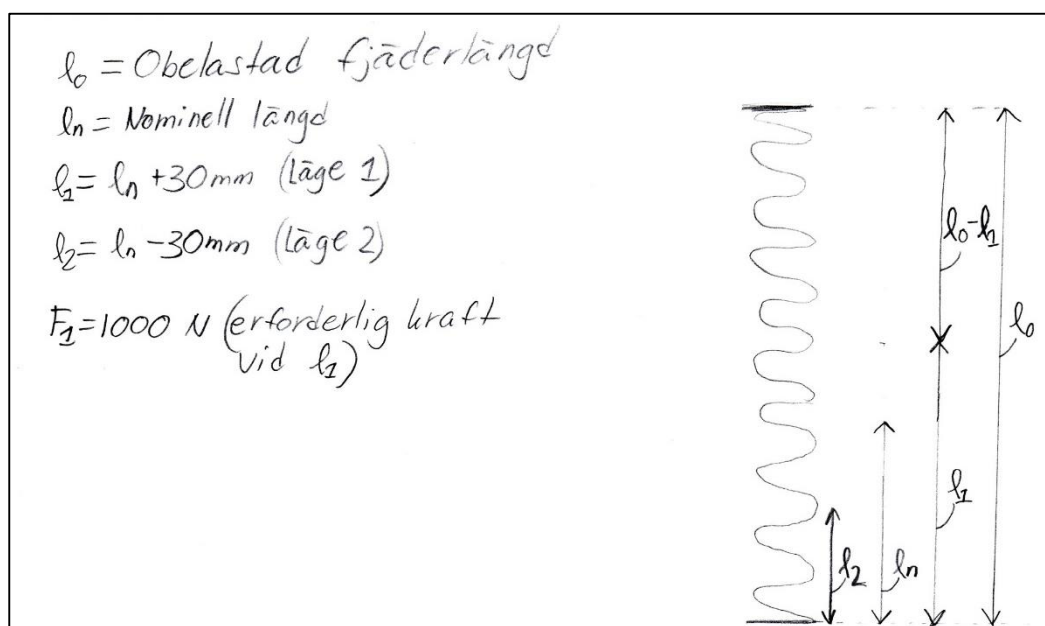 l₀ = Obelastad fjäderlängd
lₙ = Nominell längd
l₁ = lₙ +30mm (Läge 1)
l₂ = lₙ -30mm (Läge 2)
F₁=1000 N (erforderlig kraft
vid l₁)
l₀-l₁
l₀
l₁
l₂
lₙ